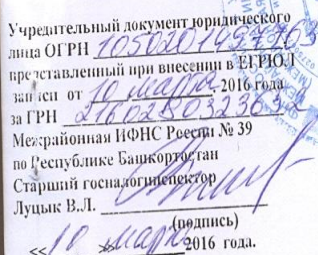 Учредительный документ юридического
лица ОГРН 1050201497763
представленный при внесении в ЕГРЮЛ
записи от 10 марта 2016 года
за ГРН
Межрайонная ИФНС России № 39
по Республике Башкортостан
Старший госналогинспектор
Луцык В.Л.
(подпись)
«10» марта 2016 года.